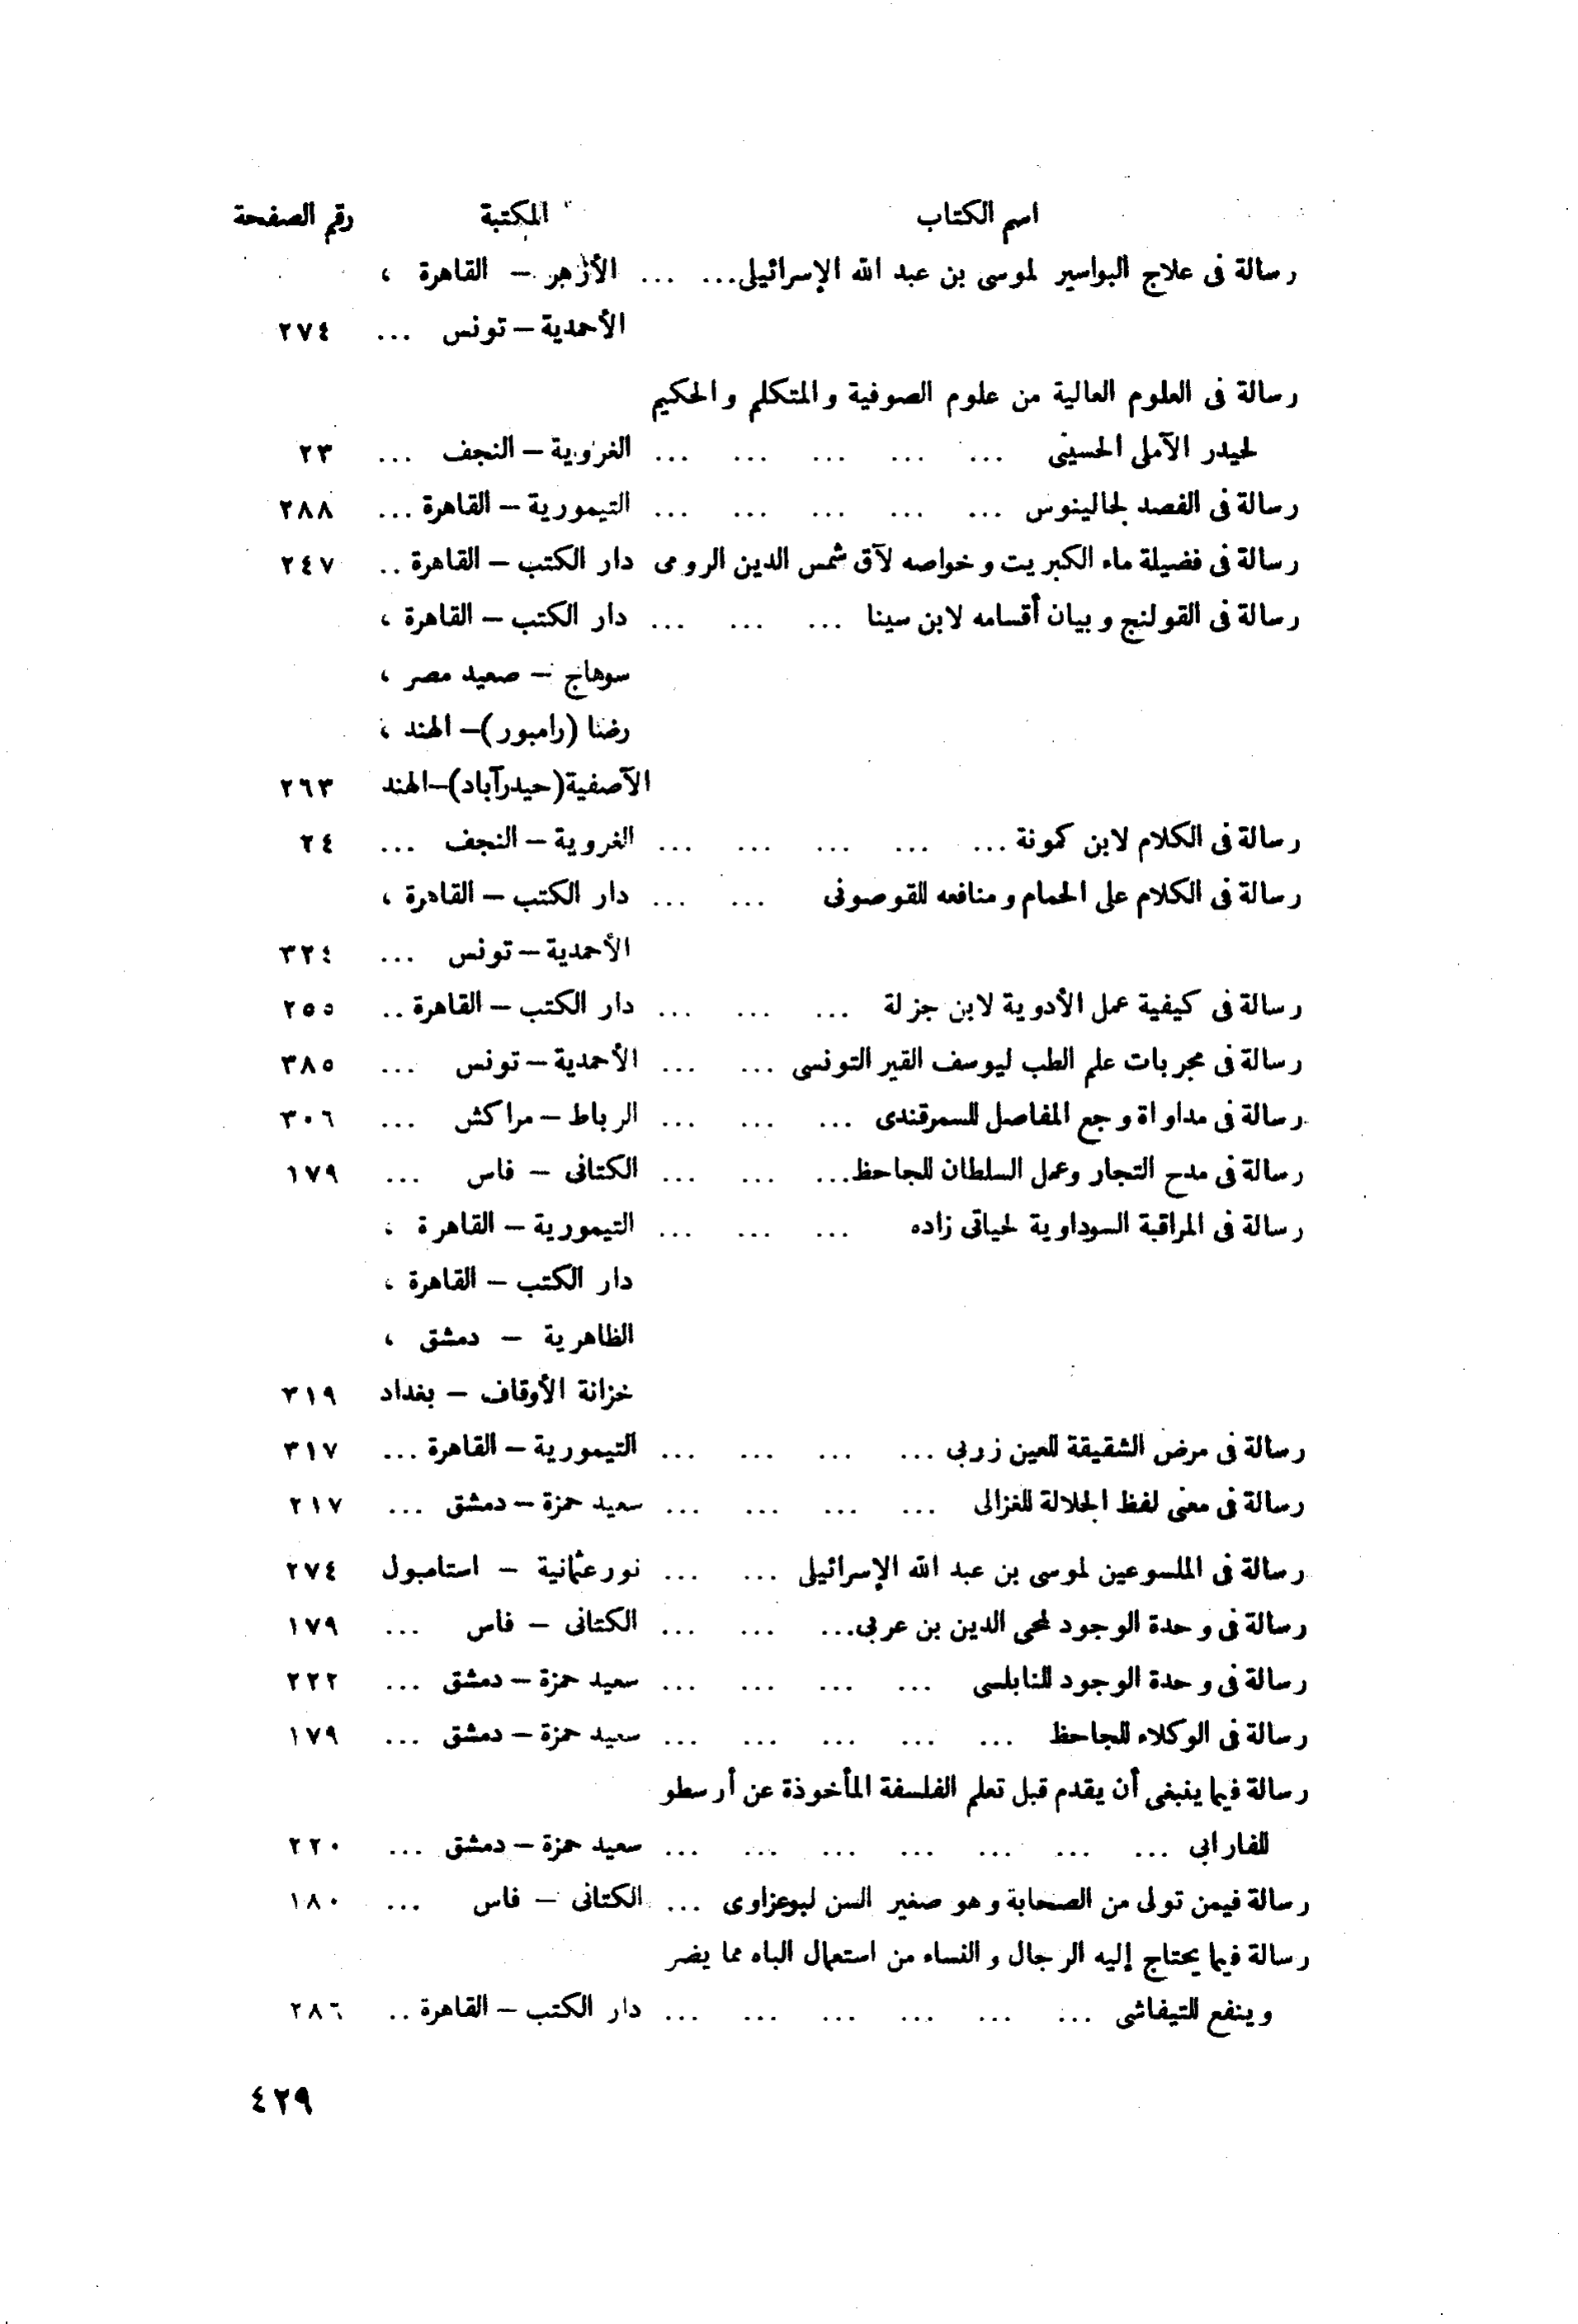 اسم الكتاب المكتبة رقم الصفحة
رسالة فى علاج البواسير لموسى بن عبد الله الإسرائيلى... ... الأزهر – القاهرة ،
الأحمدية – تونس ... ٢٧٤
رسالة فى العلوم العالية من علوم الصوفية والمتكلم والحكيم
لحيدر الآملى الحسينى ... ... ... ... ... الغروية – النجف ... ٢٣
رسالة فى الفصد لجالينوس ... ... ... ... ... التيمورية – القاهرة ... ٢٨٨
رسالة فى فضيلة ماء الكبريت وخواصه لآق شمس الدين الرومى دار الكتب – القاهرة .. ٢٤٧
رسالة فى القولنج وبيان أقسامه لابن سينا ... ... ... دار الكتب – القاهرة ،
سوهاج – صعيد مصر ،
رضا (رامبور) – الهند ،
الآصفية (حيدرآباد) – الهند ٢٦٣
رسالة فى الكلام لابن كمونة ... ... ... ... ... الغروية – النجف ... ٢٤
رسالة فى الكلام على الحمام ومنافعه للقوصونى ... ... دار الكتب – القاهرة ،
الأحمدية – تونس ... ٣٢٤
رسالة فى كيفية عمل الأدوية لابن جزلة ... ... ... دار الكتب – القاهرة .. ٢٥٥
رسالة فى مجربات علم الطب ليوسف القير التونسى ... ... الأحمدية – تونس ... ٣٨٥
رسالة فى مداواة وجع المفاصل للسمرقندى ... ... ... الرباط – مراكش ... ٣٠٦
رسالة فى مدح التجار وعمل السلطان للجاحظ... ... ... الكتانى – فاس ... ١٧٩
رسالة فى المراقبة السوداوية لحياتى زاده ... ... ... التيمورية – القاهرة ،
دار الكتب – القاهرة ،
الظاهرية – دمشق ،
خزانة الأوقاف – بغداد ٣١٩
رسالة فى مرض الشقيقة للعين زربى ... ... ... ... التيمورية – القاهرة ... ٣١٧
رسالة فى معنى لفظ الجلالة للغزالى ... ... ... ... سعيد حمزة – دمشق ... ٢١٧
رسالة فى الملسوعين لموسى بن عبد الله الإسرائيلى ... ... نور عثمانية – استامبول ٢٧٤
رسالة فى وحدة الوجود لمحى الدين بن عربى... ... ... الكتانى – فاس ... ١٧٩
رسالة فى وحدة الوجود للنابلسى ... ... ... ... سعيد حمزة – دمشق ... ٢٢٢
رسالة فى الوكلاء للجاحظ ... ... ... ... ... سعيد حمزة – دمشق ... ١٧٩
رسالة فيما ينبغى أن يقدم قبل تعلم الفلسفة المأخوذة عن أرسطو
للفارابى ... ... ... ... ... ... ... سعيد حمزة – دمشق ... ٢٢٠
رسالة فيمن تولى من الصحابة وهو صغير السن لبوعزاوى ... الكتانى – فاس ... ١٨٠
رسالة فيما يحتاج إليه الرجال والنساء من استعمال الباه مما يضر
وينفع للتيفاشى ... ... ... ... ... ... دار الكتب – القاهرة .. ٢٨٦
٤٢٩